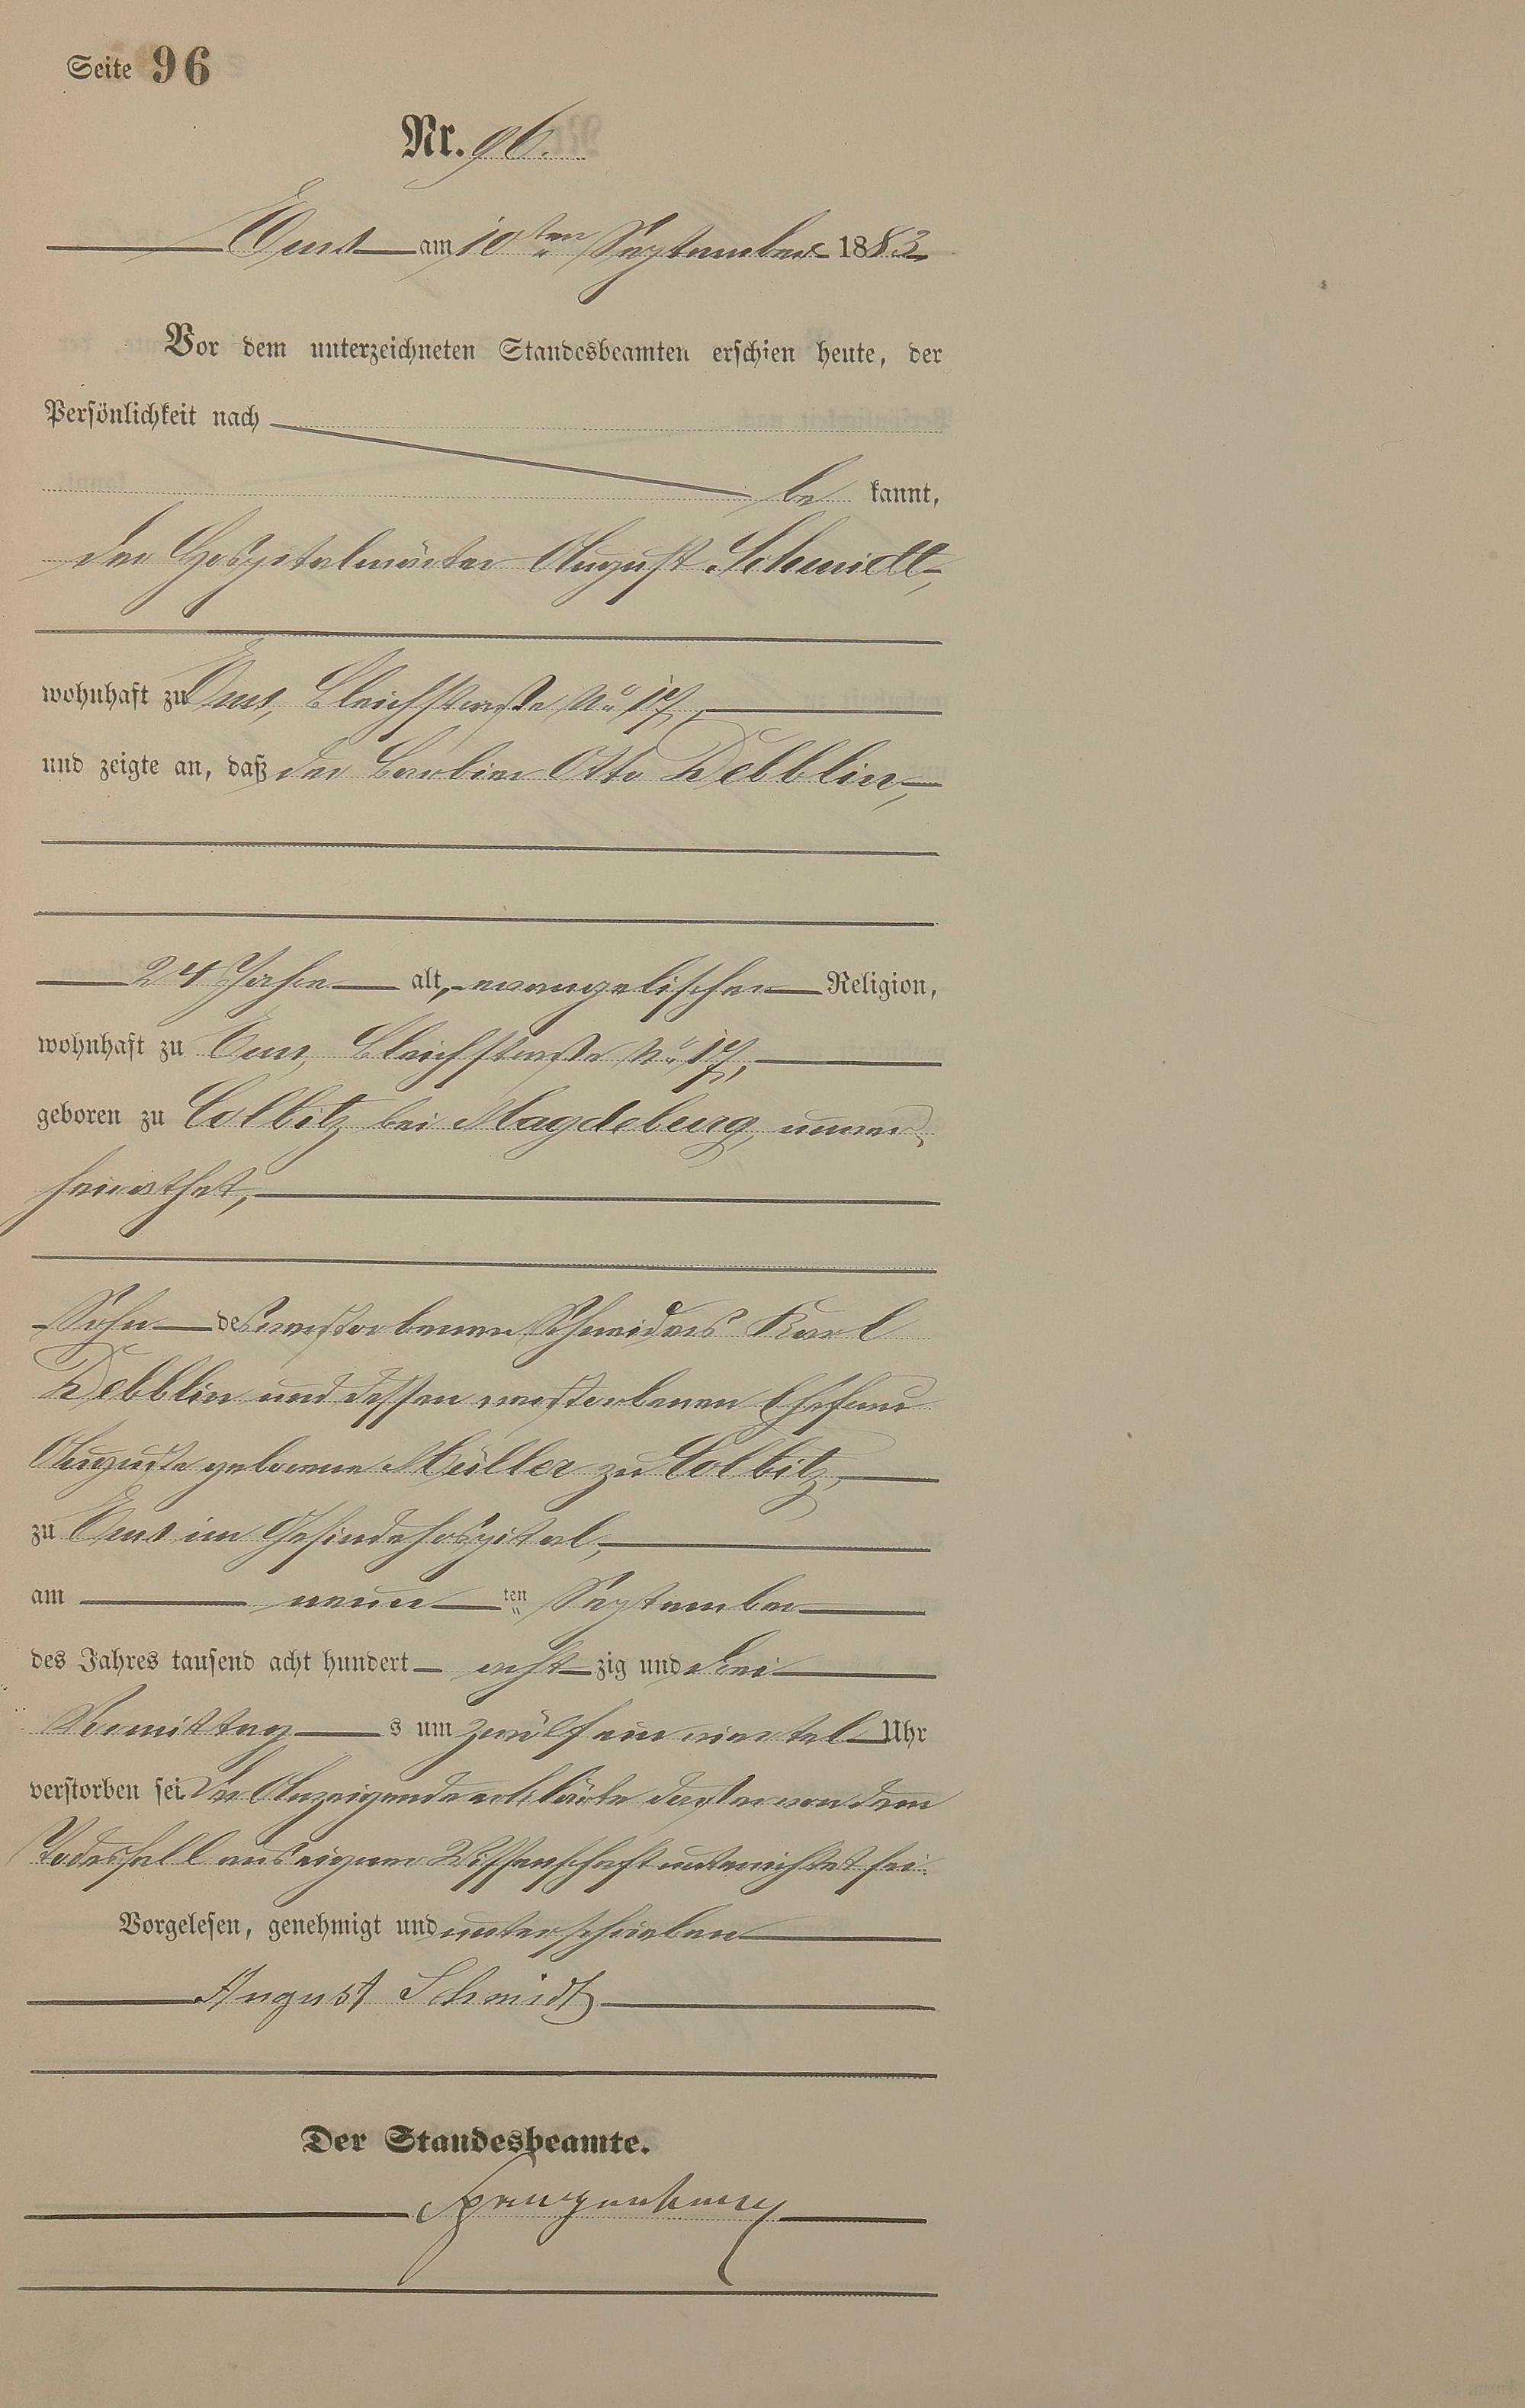 Seite 96
Nr. 96.
Ems am 10ten September 1883
Vor dem unterzeichneten Standesbeamten erschien heute, der
Persönlichkeit nach
be kannt,
der Hospitalwärter August Schmidt,
wohnhaft zu Ems, Bleichstraße No 17,
und zeigte an, daß der Barbier Otto Debblin,
24 Jahre alt, evangelischer Religion,
wohnhaft zu Ems, Bleichstraße No 17,
geboren zu Colbitz bei Magdeburg, unver-
heirathet,
Sohn des verstorbenen Schneiders Karl
Debblin und dessen verstorbenen Ehefrau
Auguste geborene Müller zu Colbitz,
zu Ems im Gesindehospital,
am neun ten September
des Jahres tausend acht hundert acht zig und drei
Vormittag s um zwölf ein viertel Uhr
verstorben sei. Der Anzeigende erklärte daß er von dem
Todesfall aus eigener Wissenschaft unterrichtet sei.
Vorgelesen, genehmigt und unterschrieben
August Schmidt
Der Standesbeamte.
Spangenberg